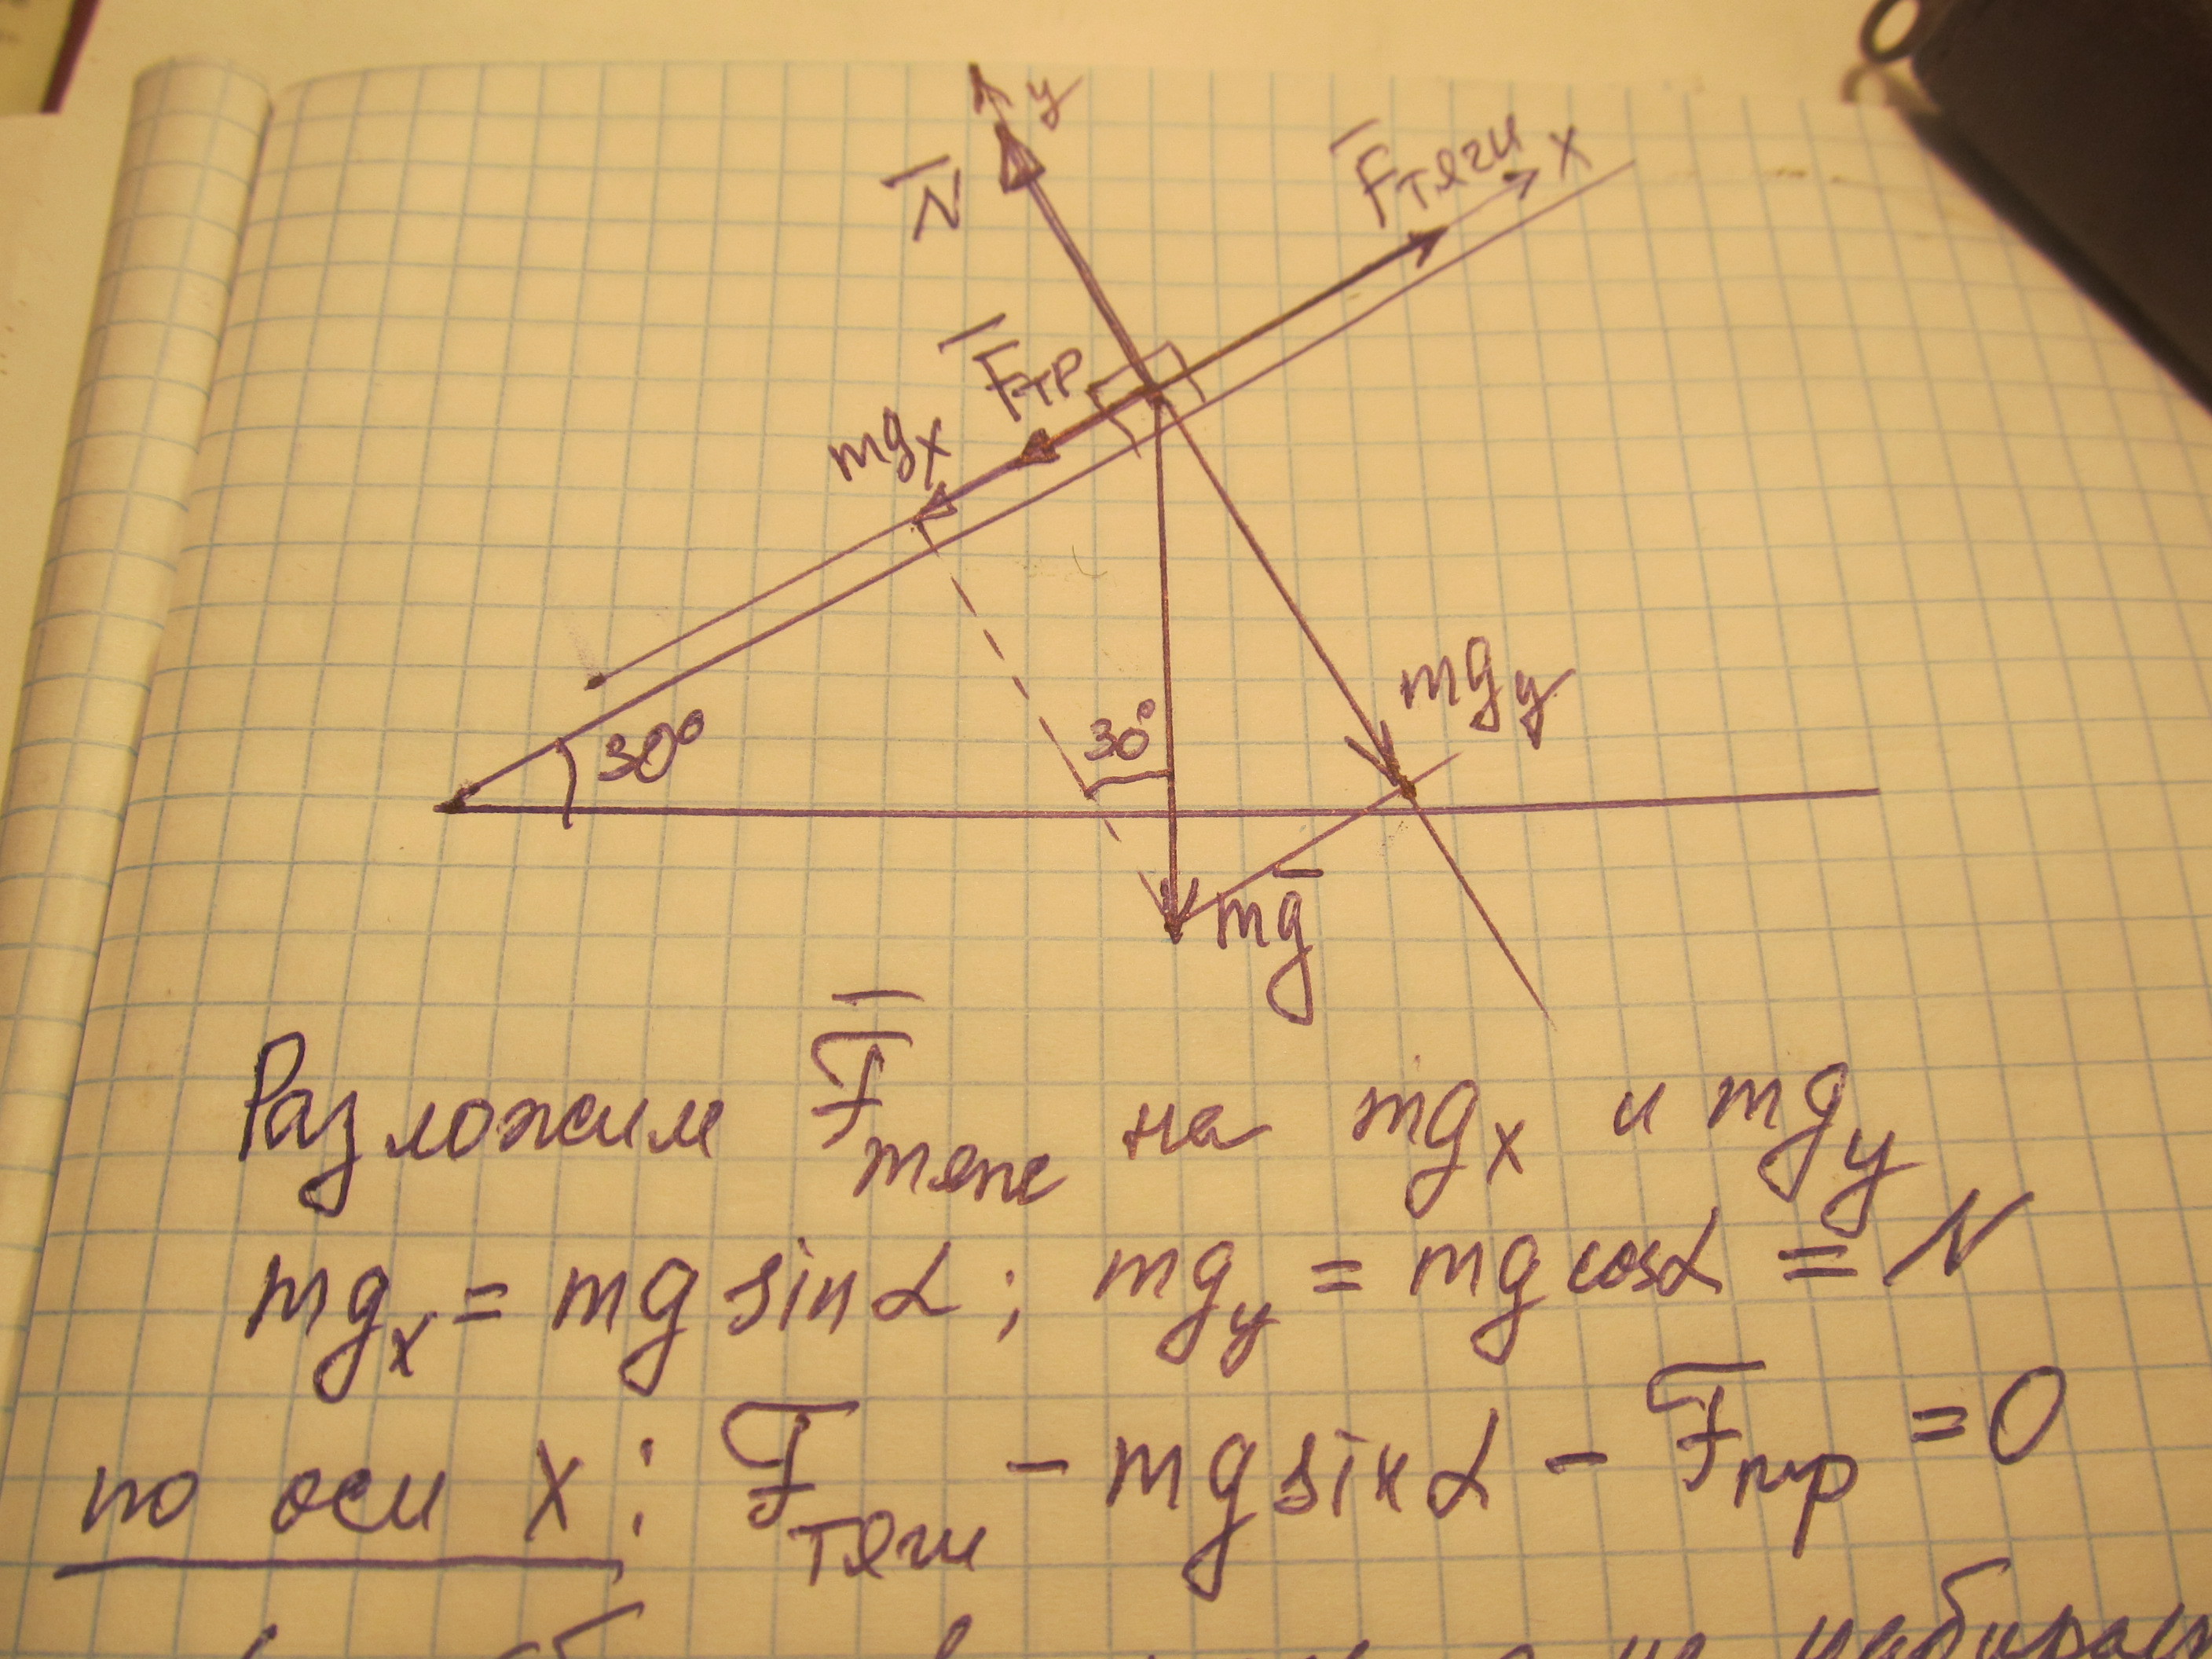 y
N̅
F̅тяги x
F̅тр
mgx
mgy
30°
30°
mg̅
Разложим F̅тяж на mgx и mgy
mgx = mg sin α; mgy = mg cosα = N
по оси x: F̅тяги - mg sin α - F̅тр = 0